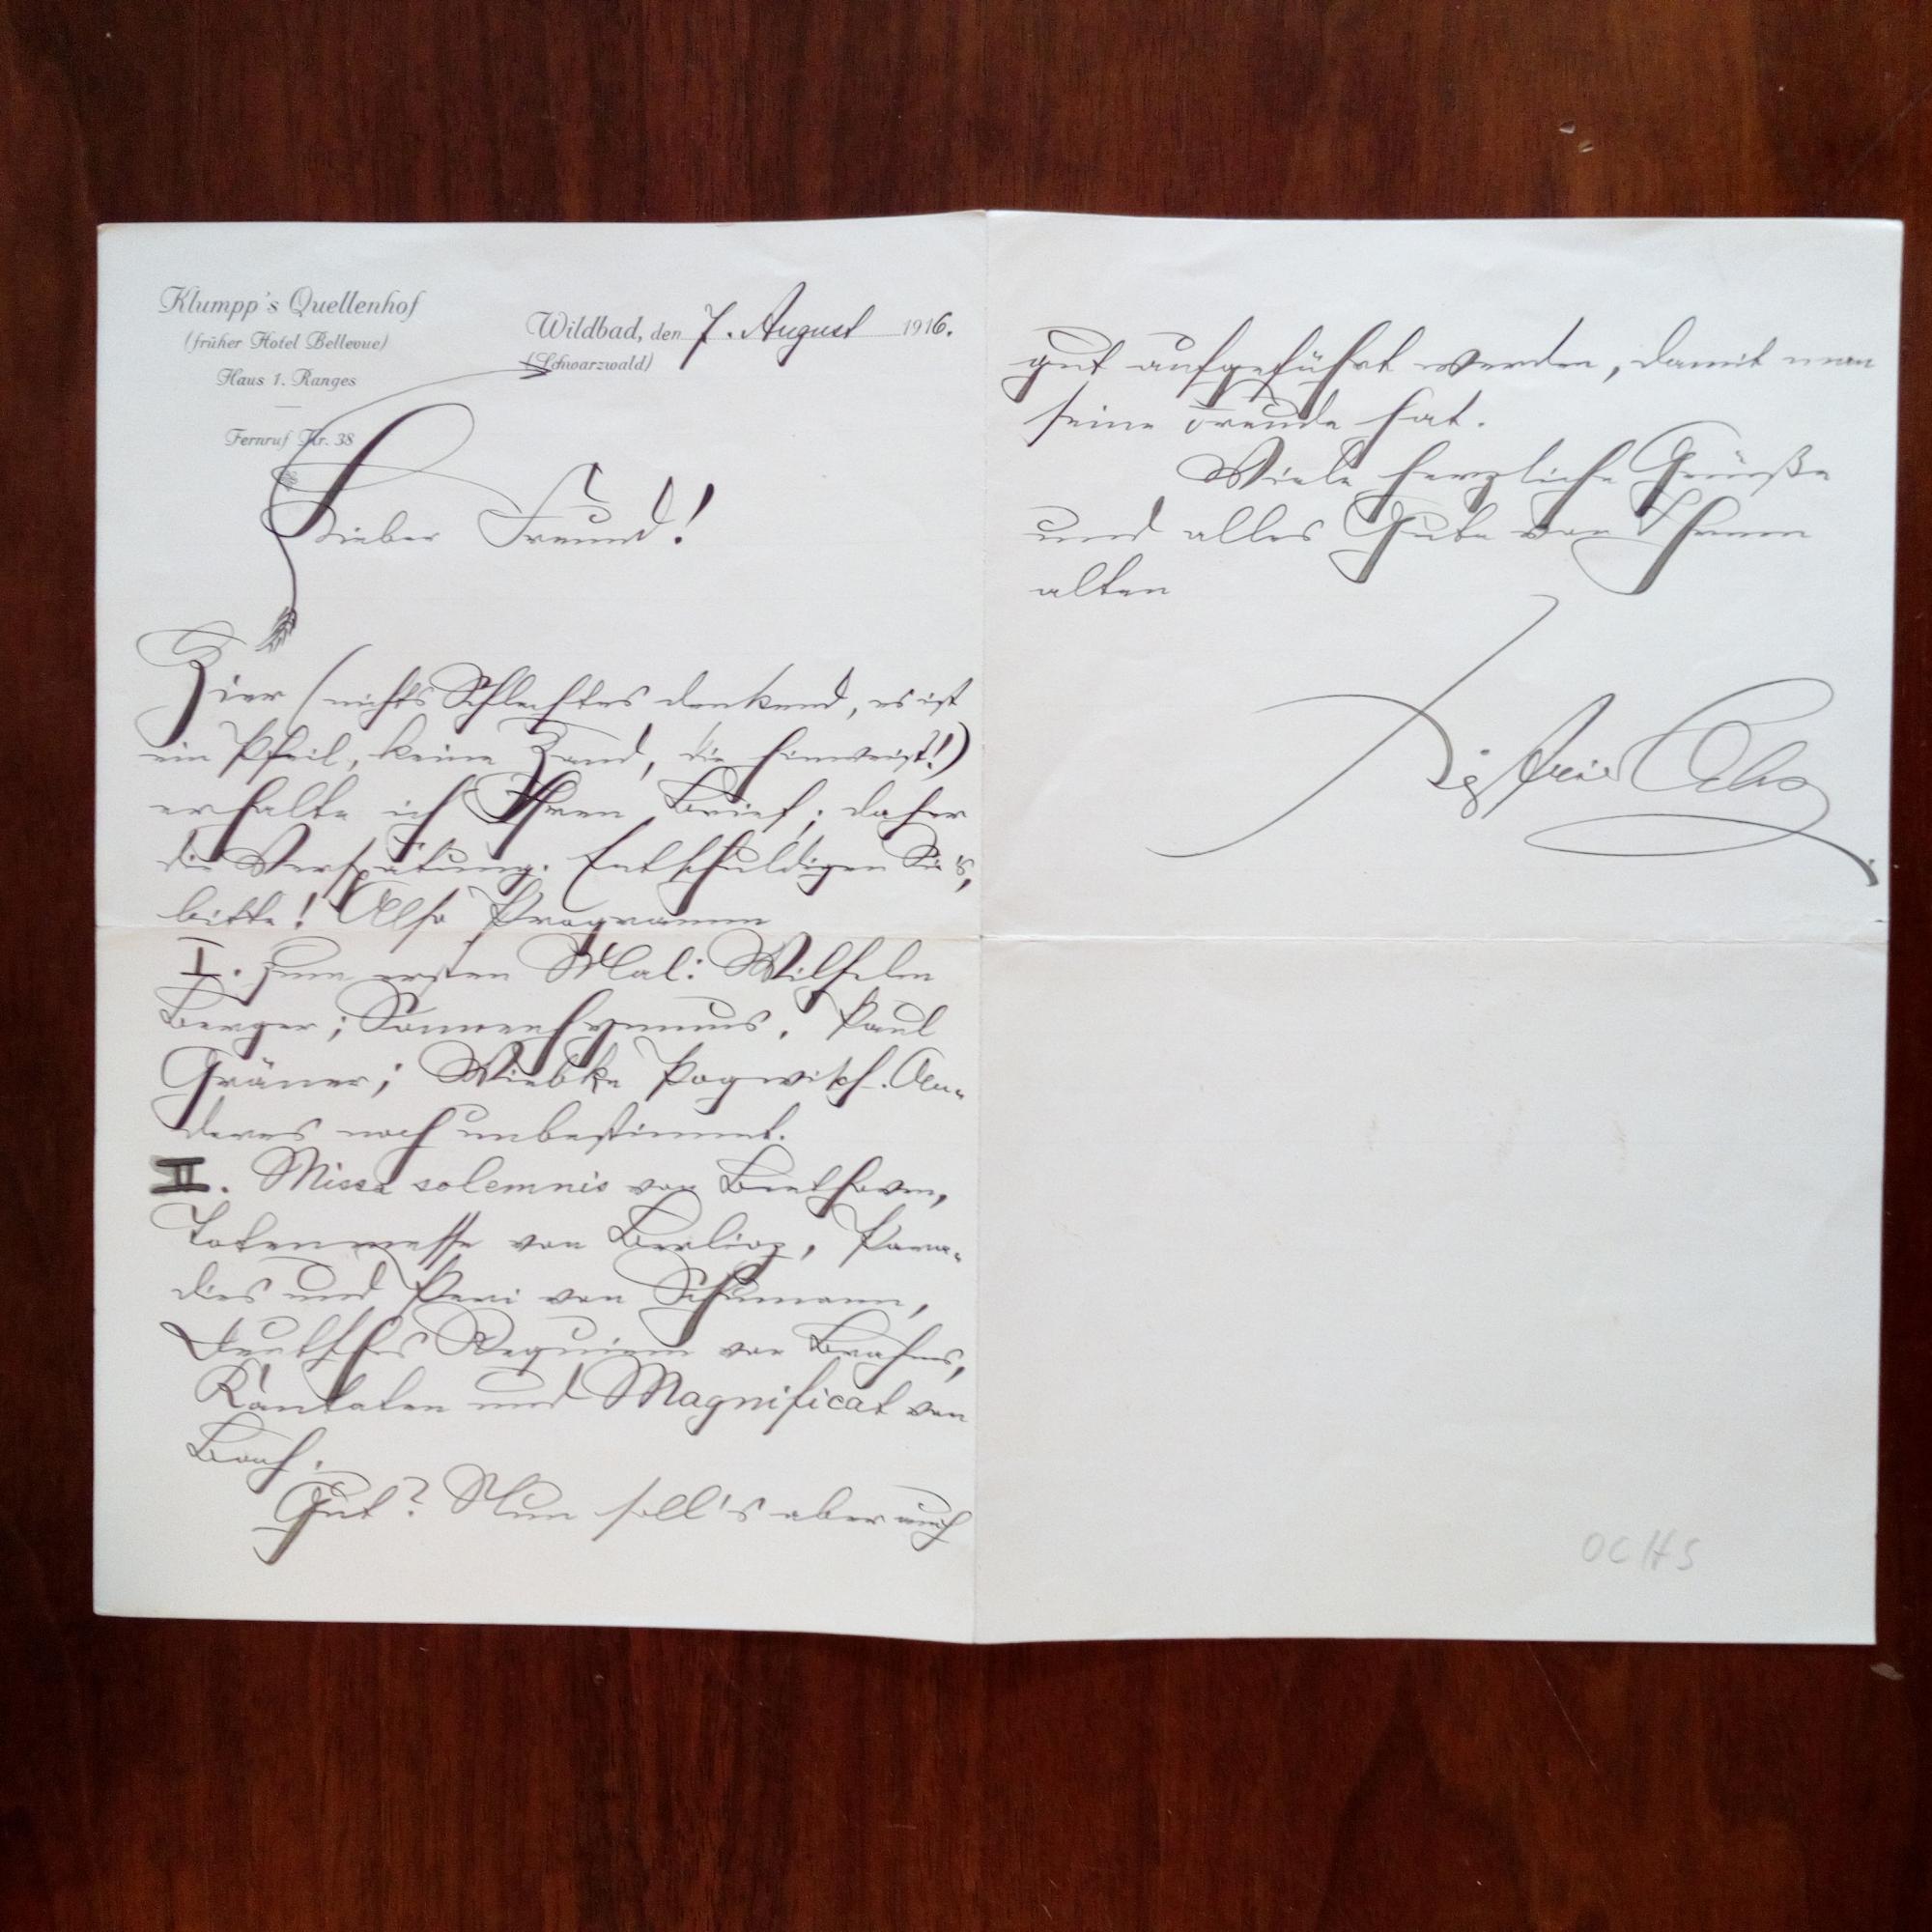 Klumpp's Quellenhof
(früher Hotel Bellevue)
Haus 1. Ranges
Fernruf Nr. 38
Wildbad, den 7. August 1916.
(Schwarzwald)
Lieber Freund!
Hier (nichts Schlechtes denkend, es ist
ein Pfeil, keine Hand, die hinweist!)
erhalte ich Ihren Brief; daher
die Verspätung. Entschuldigen Sie's,
bitte! Also Programm
I. Zum ersten Mal: Wilhelm
Berger; Sonnenhymnus. Paul
Gräner; Wiebke Pogwisch. An-
deres noch unbestimmt.
II. Missa solemnis von Beethoven,
Totenmesse von Berlioz, Para-
dies und Peri von Schumann,
Deutsches Requiem von Brahms,
Kantaten und Magnificat von
Bach.
Gut? Nun soll's aber auch
gut aufgeführt werden, damit man
seine Freude hat.
Viele herzliche Grüße
und alles Gute von Ihrem
alten
Siegfried Ochs
OCHS